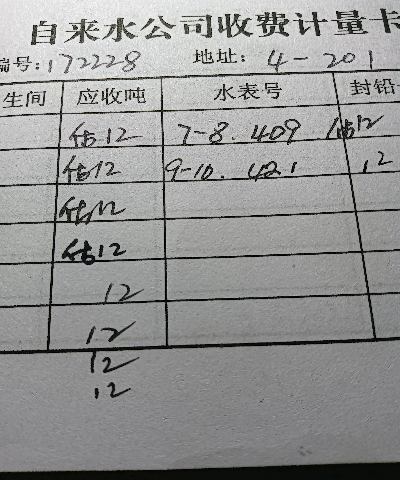 自来水公司收费计量卡
编号:172228 地址: 4-201
生间 应收吨 水表号 封铅
估12 7-8. 409 估12
估12 9-10. 421 12
估12
估12
12
12
12
12